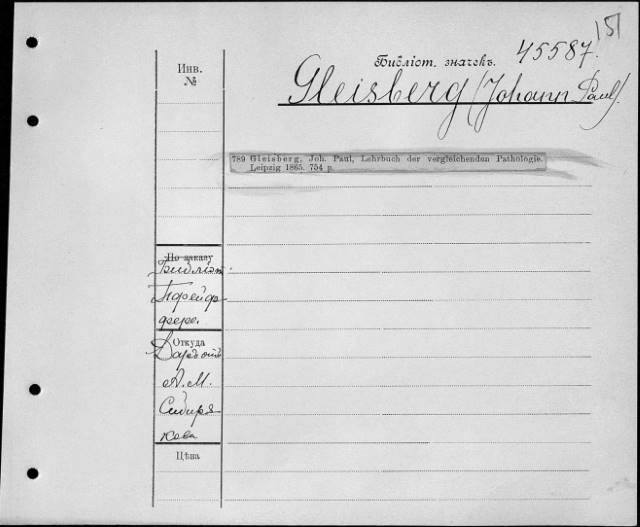 151
Инв.
№
Библіот. значекъ. 45587.
Gleisberg (Johann Paul).
789 Gleisberg, Joh. Paul, Lehrbuch der vergleichenden Pathologie.
Leipzig 1865. 754 p.
По заказу
Библіот.
Откуда
А. М.
Сибиря
кова
Цѣна